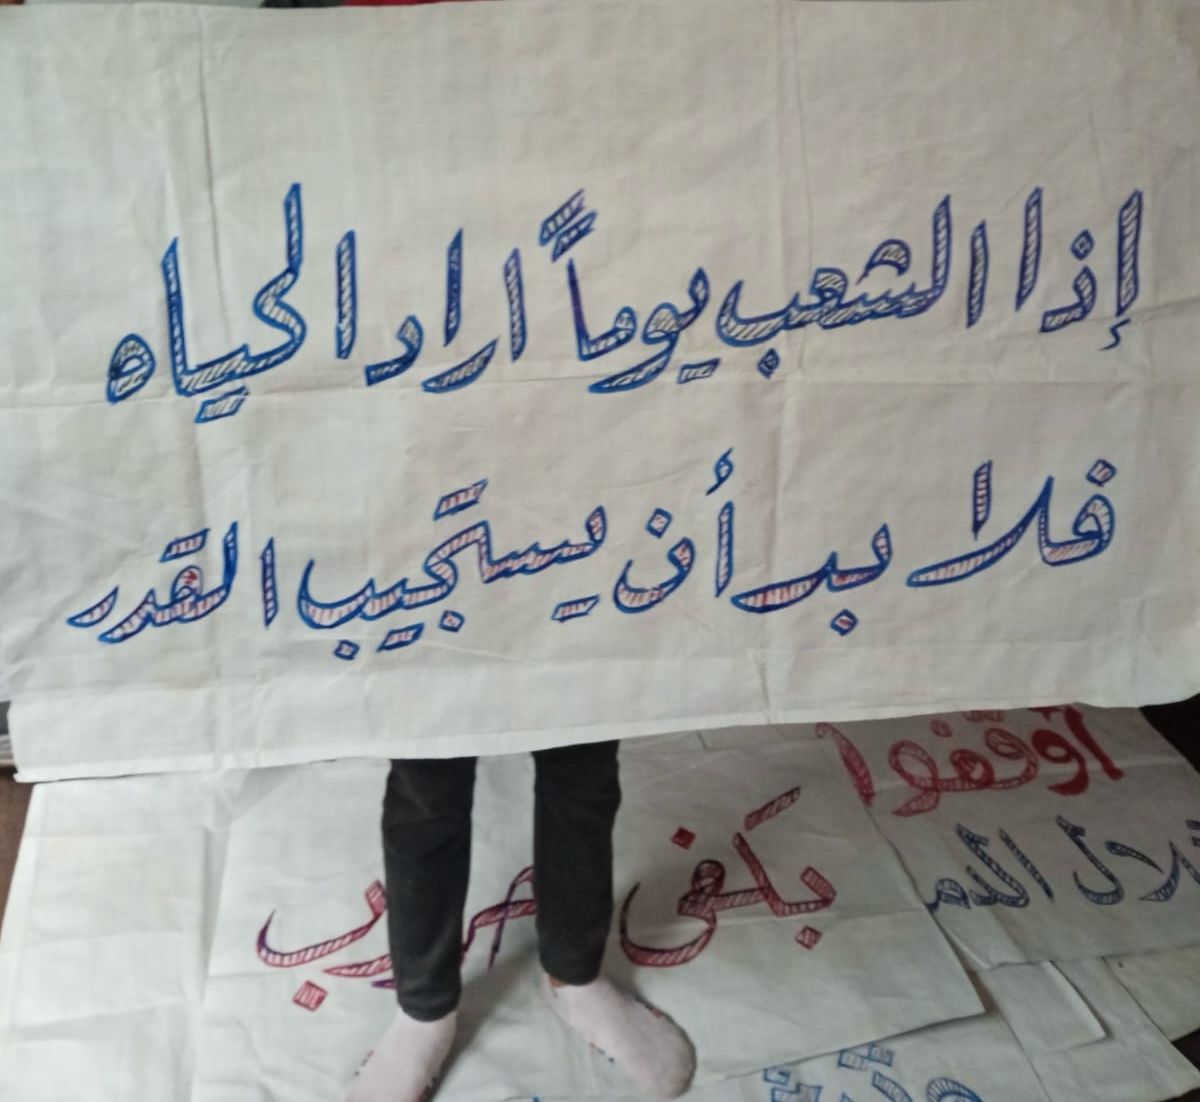 إذا الشعب يوماً اراد الحياه
فلا بد أن يستجيب القدر
أوقفوا
بكفي حرب